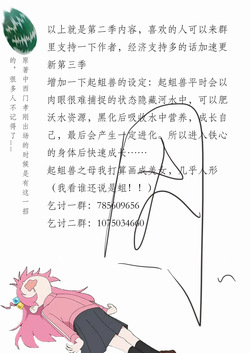 以上就是第二季内容，喜欢的人可以来群
里支持一下作者，经济支持多的话加速更
新第三季
增加一下起蛆兽的设定：起蛆兽平时会以
肉眼很难捕捉的状态隐藏河水中，可以肥
沃水资源，黑化后吸收水中营养，成长自
己，最后会产生一定进化。所以进入铁心
的身体后快速成长……
起蛆兽之母我打算画成美女，几乎人形
（我看谁还说是蛆！！）
乞讨一群：785609656
乞讨二群：1075034660
原著中西门孝刚出场的时候是有这一招
的，很多人不记得了…